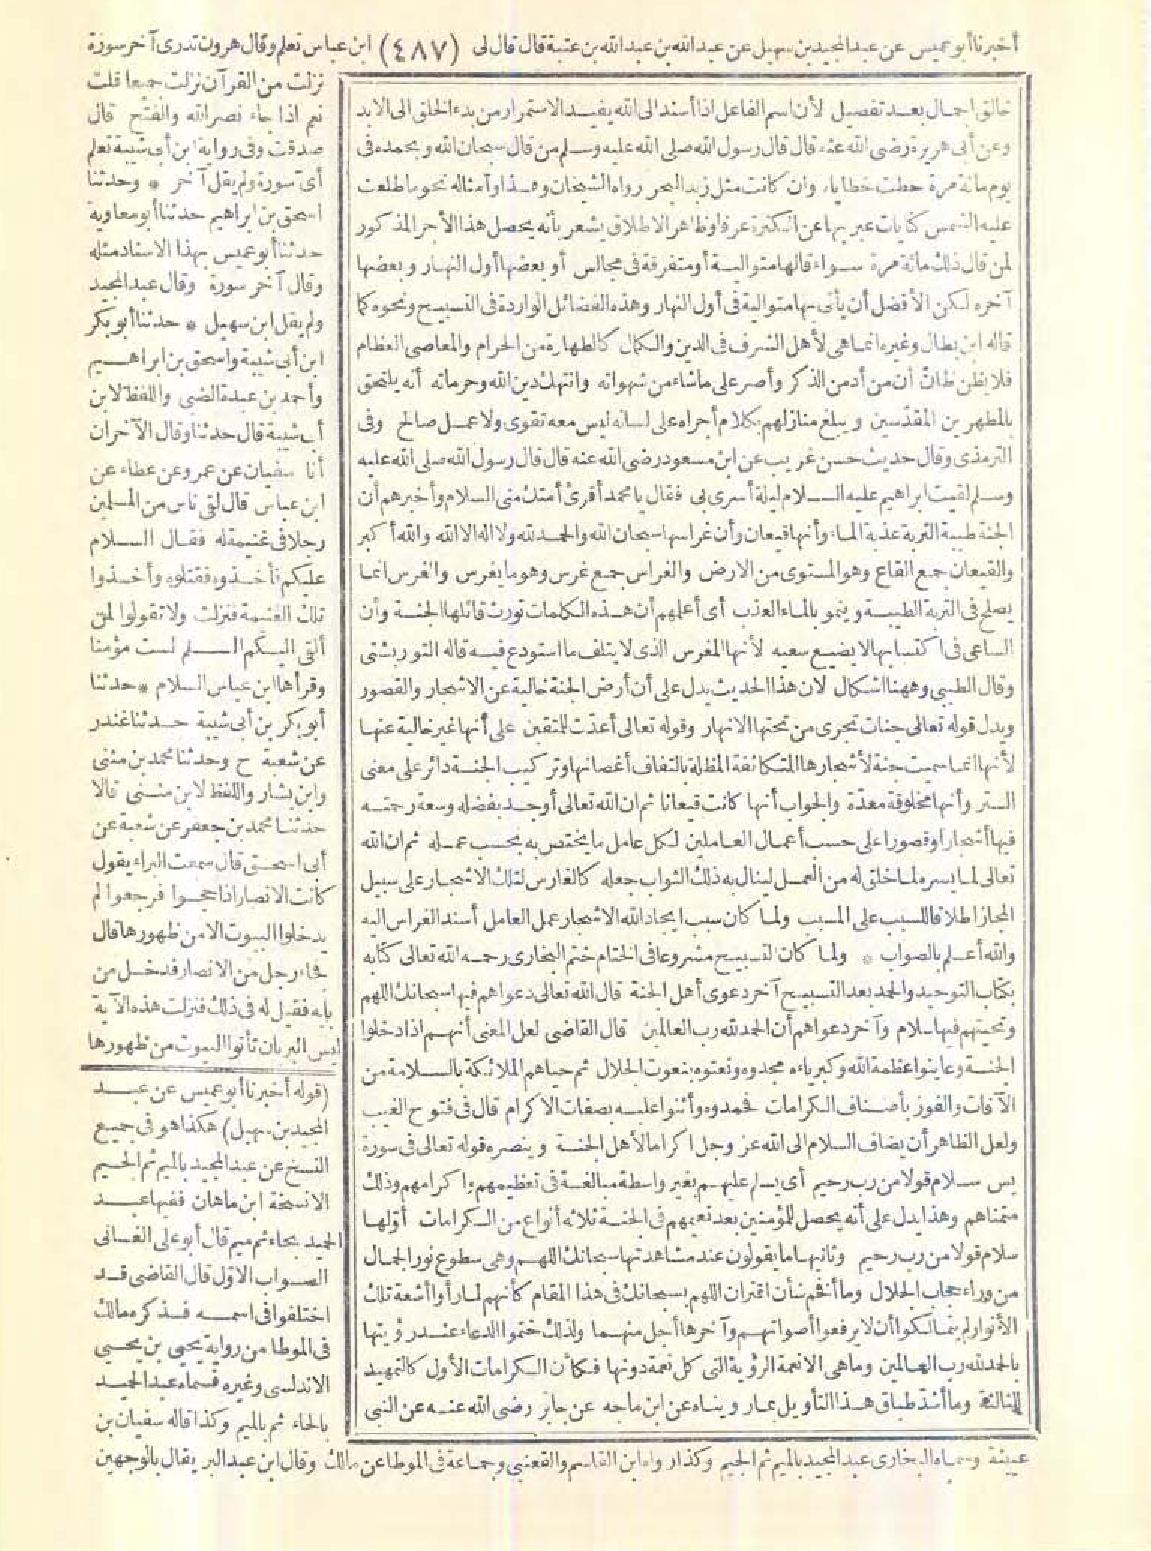 أخبرنا أبو عميس عن عبد المجيد بن سهيل عن عبيد الله بن عبد الله بن عتبة قال قال لى (٤٨٧) ابن عباس تعلم وقال هرون تدرى آخر سورة
خالق اجمال بعد تفصيل لأن اسم الفاعل اذا أسند الى الله يفيد الاستمرار من بدء الخلق الى الابد
وعن أبى هريرة رضى الله عنه قال قال رسول الله صلى الله عليه وسلم من قال سبحان الله وبحمده فى
يوم مائة مرة حطت خطاياه وان كانت مثل زبد البحر رواه الشيخان وهذا وأمثاله نحو ما طلعت
عليه الشمس كنايات عبر بها عن الكثرة عرفا وظاهر الاطلاق يشعر بأنه يحصل هذا الأجر المذكور
لمن قال ذلك مائة مرة سواء قالها متوالية أو متفرقة فى مجالس أو بعضها أول النهار وبعضها
آخره لكن الأفضل أن يأتى بها متوالية فى أول النهار وهذه الفضائل الواردة فى التسبيح ونحوه كما
قاله ابن بطال وغيره انما هى لأهل الشرف فى الدين والكمال كالطهارة من الحرام والمعاصى العظام
فلا يظن ظانّ أن من أدمن الذكر وأصر على ما شاء من شهواته وانتهك دين الله وحرماته أنه يلتحق
بالمطهرين المقدّسين ويبلغ منازلهم بكلام أجراه على لسانه ليس معه تقوى ولا عمل صالح وفى
الترمذى وقال حديث حسن غريب عن ابن مسعود رضى الله عنه قال قال رسول الله صلى الله عليه
وسلم لقيت ابراهيم عليه السلام ليلة أسرى بى فقال يا محمد أقرئ أمتك منى السلام وأخبرهم أن
الجنة طيبة التربة عذبة الماء وأنها قيعان وأن غراسها سبحان الله والحمد لله ولا اله الا الله والله أكبر
والقيعان جمع القاع وهو المستوى من الارض والغراس جمع غرس وهو ما يغرس والغرس انما
يصلح فى التربة الطيبة وينمو بالماء العذب أى أعلمهم أن هذه الكلمات تورث قائلها الجنة وأن
الساعى فى اكتسابها لا يضيع سعيه لأنها المغرس الذى لا يتلف ما استودع فيه قاله التوربشتى
وقال الطيبى وههنا اشكال لان هذا الحديث يدل على أن أرض الجنة خالية عن الاشجار والقصور
ويدل قوله تعالى جنات تجرى من تحتها الانهار وقوله تعالى أعدّت للمتقين على أنها غير خالية عنها
لأنها انما سميت جنة لأشجارها المتكاثفة المظلة بالتفاف أغصانها وتركيب الجنة دائر على معنى
الستر وأنها مخلوقة معدّة والجواب أنها كانت قيعانا ثم ان الله تعالى أوجد بفضله وسعة رحمته
فيها أشجارا وقصورا على حسب أعمال العاملين لكل عامل ما يختص به بحسب عمله ثم ان الله
تعالى لما يسره لما خلق له من العمل لينال به ذلك الثواب جعله كالغارس لتلك الاشجار على سبيل
المجاز اطلاقا للسبب على المسبب ولما كان سبب ايجاد الله الاشجار عمل العامل أسند الغراس اليه
والله أعلم بالصواب * ولما كان التسبيح مشروعا فى الختام ختم البخارى رحمه الله تعالى كتابه
بكتاب التوحيد والحمد بعد التسبيح آخر دعوى أهل الجنة قال الله تعالى دعواهم فيها سبحانك اللهم
وتحيتهم فيها سلام وآخر دعواهم أن الحمد لله رب العالمين قال القاضى لعل المعنى أنهم اذا دخلوا
الجنة وعاينوا عظمة الله وكبرياءه مجدوه ونعتوه بنعوت الجلال ثم حياهم الملائكة بالسلامة من
الآفات والفوز بأصناف الكرامات فحمدوه وأثنوا عليه بصفات الاكرام قال فى فتوح الغيب
ولعل الظاهر أن يضاف السلام الى الله عز وجل اكراما لأهل الجنة وينصره قوله تعالى فى سورة
يس سلام قولا من رب رحيم أى يسلم عليهم بغير واسطة مبالغة فى تعظيمهم واكرامهم وذلك
متمناهم وهذا يدل على أنه يحصل للمؤمنين بعد نعيمهم فى الجنة ثلاثة أنواع من الكرامات أوّلها
سلام قولا من رب رحيم وثانيها ما يقولون عند مشاهدتها سبحانك اللهم وهى سطوع نور الجمال
من وراء حجاب الجلال وما أفخم شأن اقتران اللهم بسبحانك فى هذا المقام كأنهم لما رأوا أشعة تلك
الأنوار لم يتمالكوا أن لا يرفعوا أصواتهم وآخرها أجل منهما ولذلك ختموا الدعاء عند رؤيتها
بالحمد لله رب العالمين وما هى الا نعمة الرؤية التى كل نعمة دونها فكأن الكرامات الأول كالتمهيد
للثالثة وما أشدّ طباق هذا التأويل بما روينا عن ابن ماجه عن جابر رضى الله عنه عن النبى
نزلت من القرآن نزلت جميعا قلت
نعم اذا جاء نصر الله والفتح قال
صدقت وفى رواية ابن أبى شيبة تعلم
أى سورة ولم يقل آخر * وحدثنا
اسحق بن ابراهيم حدثنا أبو معاوية
حدثنا أبو عميس بهذا الاسناد مثله
وقال آخر سورة وقال عبد المجيد
ولم يقل ابن سهيل * حدثنا أبو بكر
ابن أبى شيبة واسحق بن ابراهيم
وأحمد بن عبدة الضبى واللفظ لابن
أبى شيبة قال حدثنا وقال الآخران
أنا سفيان عن عمرو عن عطاء عن
ابن عباس قال لقى ناس من المسلمين
رجلا فى غنيمة له فقال السلام
عليكم فأخذوه فقتلوه وأخذوا
تلك الغنيمة فنزلت ولا تقولوا لمن
ألقى اليكم السلم لست مؤمنا
وقرأها ابن عباس السلام * حدثنا
أبو بكر بن أبى شيبة حدثنا غندر
عن شعبة ح وحدثنا محمد بن مثنى
وابن بشار واللفظ لابن مثنى قالا
حدثنا محمد بن جعفر عن شعبة عن
أبى اسحق قال سمعت البراء يقول
كانت الانصار اذا حجوا فرجعوا لم
يدخلوا البيوت الا من ظهورها قال
فجاء رجل من الانصار فدخل من
بابه فقيل له فى ذلك فنزلت هذه الآية
ليس البر بان تأتوا البيوت من ظهورها
(قوله أخبرنا أبو عميس عن عبد
المجيد بن سهيل) هكذا هو فى جميع
النسخ عن عبد المجيد بالميم ثم الجيم
الا نسخة ابن ماهان ففيها عبد
الحميد بحاء ثم ميم قال أبو على الغسانى
الصواب الاوّل قال القاضى قد
اختلفوا فى اسمه فذكره مالك
فى الموطا من رواية يحيى بن يحيى
الاندلسى وغيره فسماه عبد الحميد
بالحاء ثم بالميم وكذا قاله سفيان بن
عيينة وسماه البخارى عبد المجيد بالميم ثم الجيم وكذا رواه ابن القاسم والقعنبى وجماعة فى الموطا عن مالك وقال ابن عبد البر يقال بالوجهين